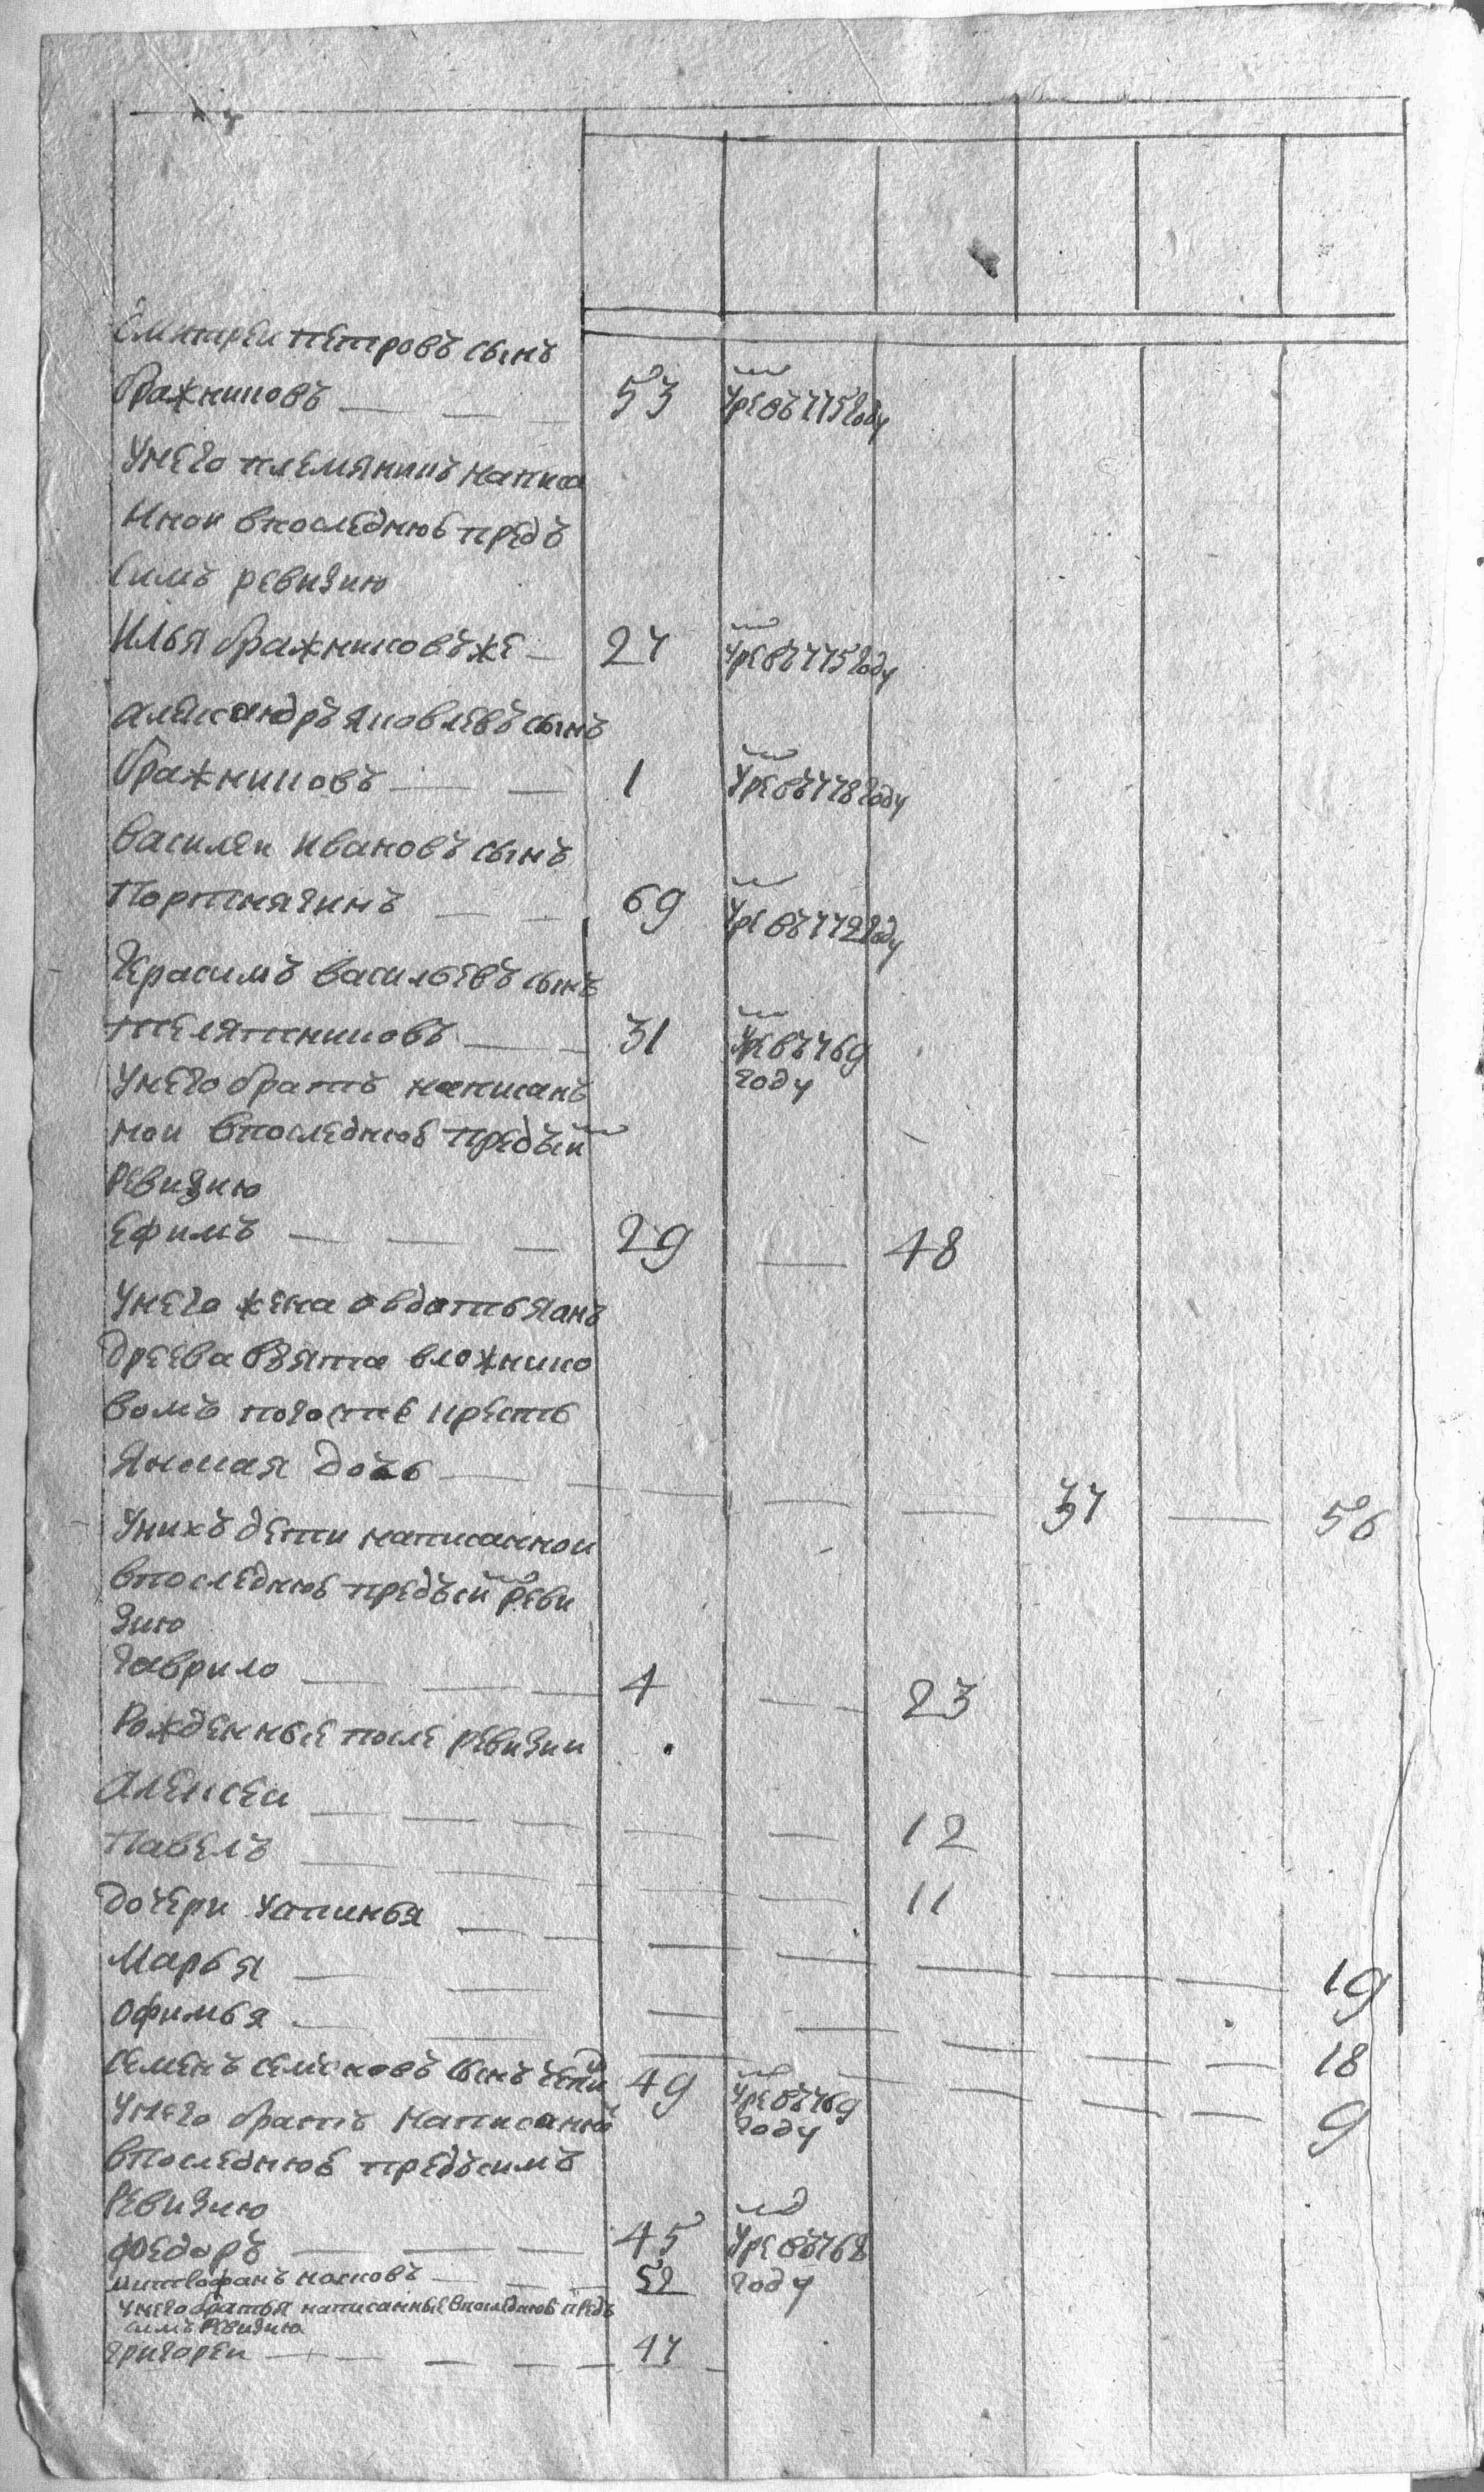 Дмитреи петровъ сынъ
бражниковъ — — 53 умре въ 775 году
унего племянникъ написа
нной впоследнюю предъ
симъ ревизию
Илья бражниковъ же — 27 умре въ 775 году
александръ яковлевъ сынъ
бражниковъ — — 1 умре въ 778 году
василеи ивановъ сынъ
Портнягинъ — — 69 умре въ 772 году
Герасимъ васильевъ сынъ
телятниковъ — — 31 умре въ 769
году
унего братъ написанъ
нои впоследнюю предъ сим
ревизию
ефимъ — — — 29 — 48
унего жена овдотья анъ
дреева взята вложнико
вомъ погосте кресть
янская дочь — — — — — 37 — 56
уникъ дети написаннои
впоследнюю предъ сим реви
зию
гаврило — — — 4 — 23
Рожденные после ревизии
Алексеи — — — — — 12
Павелъ — — — — — 11
дочери устинья — — — — — — — 19
Марья — — — — — — — 18
офимья — — — — — — — 9
семенъ семеновъ сынъ 49 умре въ 769
году
унего братъ написанной
впоследнюю предъ симъ
ревизию
федоръ — — — 45 умре въ 768
году
митрофанъ носковъ — — — 52
унего братья написанные впоследнюю предъ
симъ ревизию
григореи — — — — — 47